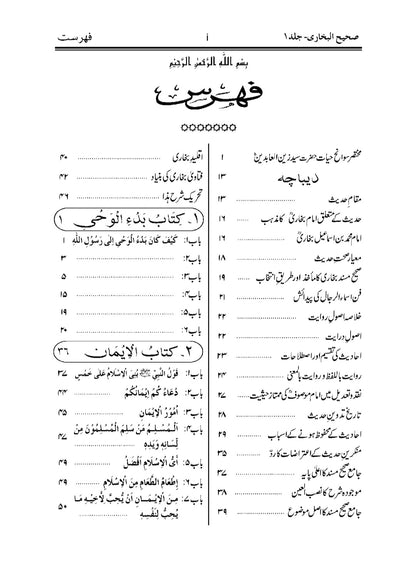 صحیح البخاری - جلد ۱
i
فهرست
بِسْمِ اللهِ الرَّحْمٰنِ الرَّحِيْمِ
فہرس
مختصر سوانح حیات حضرت سید زین العابدینؓ ۱
دیباچہ ۱۳
مقام حدیث ۱۳
حدیث کے متعلق امام بخاریؒ کا مذہب ۱۶
امام محمد بن اسماعیل بخاریؒ ۱۶
معیار صحت حدیث ۱۸
صحیح مسند بخاری کا مأخذ اور طریق انتخاب ۱۹
فن اسماء الرجال کی پیدائش ۲۱
خلاصہ اصول روایت ۲۲
اصول درایت ۲۲
احادیث کی تقسیم اور اصطلاحات ۲۳
روایت باللفظ و روایت بالمعنی ۲۴
نقد و تعدیل میں امام موصوفؒ کی ممتاز حیثیت ۲۷
تاریخ تدوین حدیث ۲۸
احادیث کے محفوظ ہونے کے اسباب ۲۹
منکرین حدیث کے اعتراضات کا رد ۳۵
جامع صحیح مسند کا اعلیٰ پایہ ۳۷
موجودہ شرح کا نصب العین ۳۸
جامع صحیح مسند کا اصل موضوع ۳۹
اقلید بخاری ۴۰
فتاویٰ بخاری کی بنیاد ۴۲
تحریک شرح ہذا ۴۶
۱۔ كِتَابُ بَدْءِ الْوَحْيِ ۱
باب۱: كَيْفَ كَانَ بَدْءُ الْوَحْيِ إِلَى رَسُوْلِ اللهِ ۱
باب۲: ۳
باب۳: ۵
باب۴: ۱۵
باب۵: ۱۹
باب۶: ۲۰
۲۔ كِتَابُ الْإِيْمَانِ ۳۶
باب۱: قَوْلُ النَّبِيِّ ﷺ بُنِيَ الْإِسْلَامُ عَلَى خَمْسٍ ۳۷
باب۲: دُعَاءُ كُمْ إِيْمَانُكُمْ ۴۴
باب۳: اُمُوْرُ الْإِيْمَانِ ۴۵
باب۴: اَلْمُسْلِمُ مَنْ سَلِمَ الْمُسْلِمُوْنَ مِنْ
لِسَانِهِ وَيَدِهِ ۴۷
باب۵: أَيُّ الْإِسْلَامِ أَفْضَلُ ۴۹
باب۶: إِطْعَامُ الطَّعَامِ مِنَ الْإِسْلَامِ ۴۹
باب۷: مِنَ الْإِيْمَانِ أَنْ يُّحِبَّ لِأَخِيْهِ مَا
يُحِبُّ لِنَفْسِهِ ۵۰